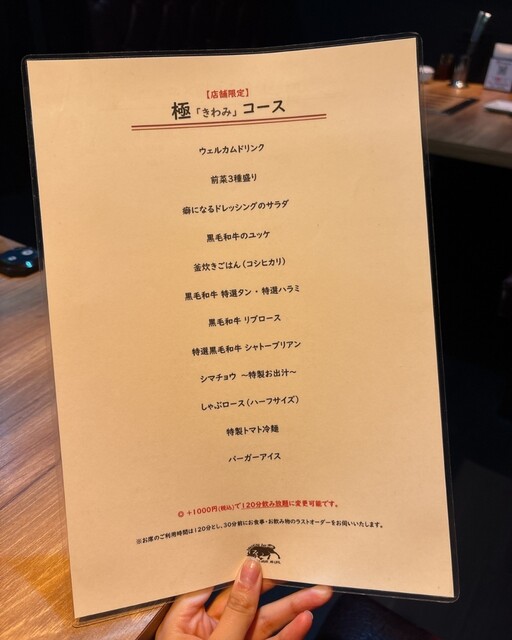 【店舗限定】
極「きわみ」コース
ウェルカムドリンク
前菜3種盛り
癖になるドレッシングのサラダ
黒毛和牛のユッケ
釜炊きごはん（コシヒカリ）
黒毛和牛 特選タン・特選ハラミ
黒毛和牛 リブロース
特選黒毛和牛 シャトーブリアン
シマチョウ 〜特製お出汁〜
しゃぶロース（ハーフサイズ）
特製トマト冷麺
バーガーアイス
◎ +1000円(税込)で120分飲み放題に変更可能です。
※お席のご利用時間は120分とし、30分前にお食事・お飲み物のラストオーダーをお伺いいたします。